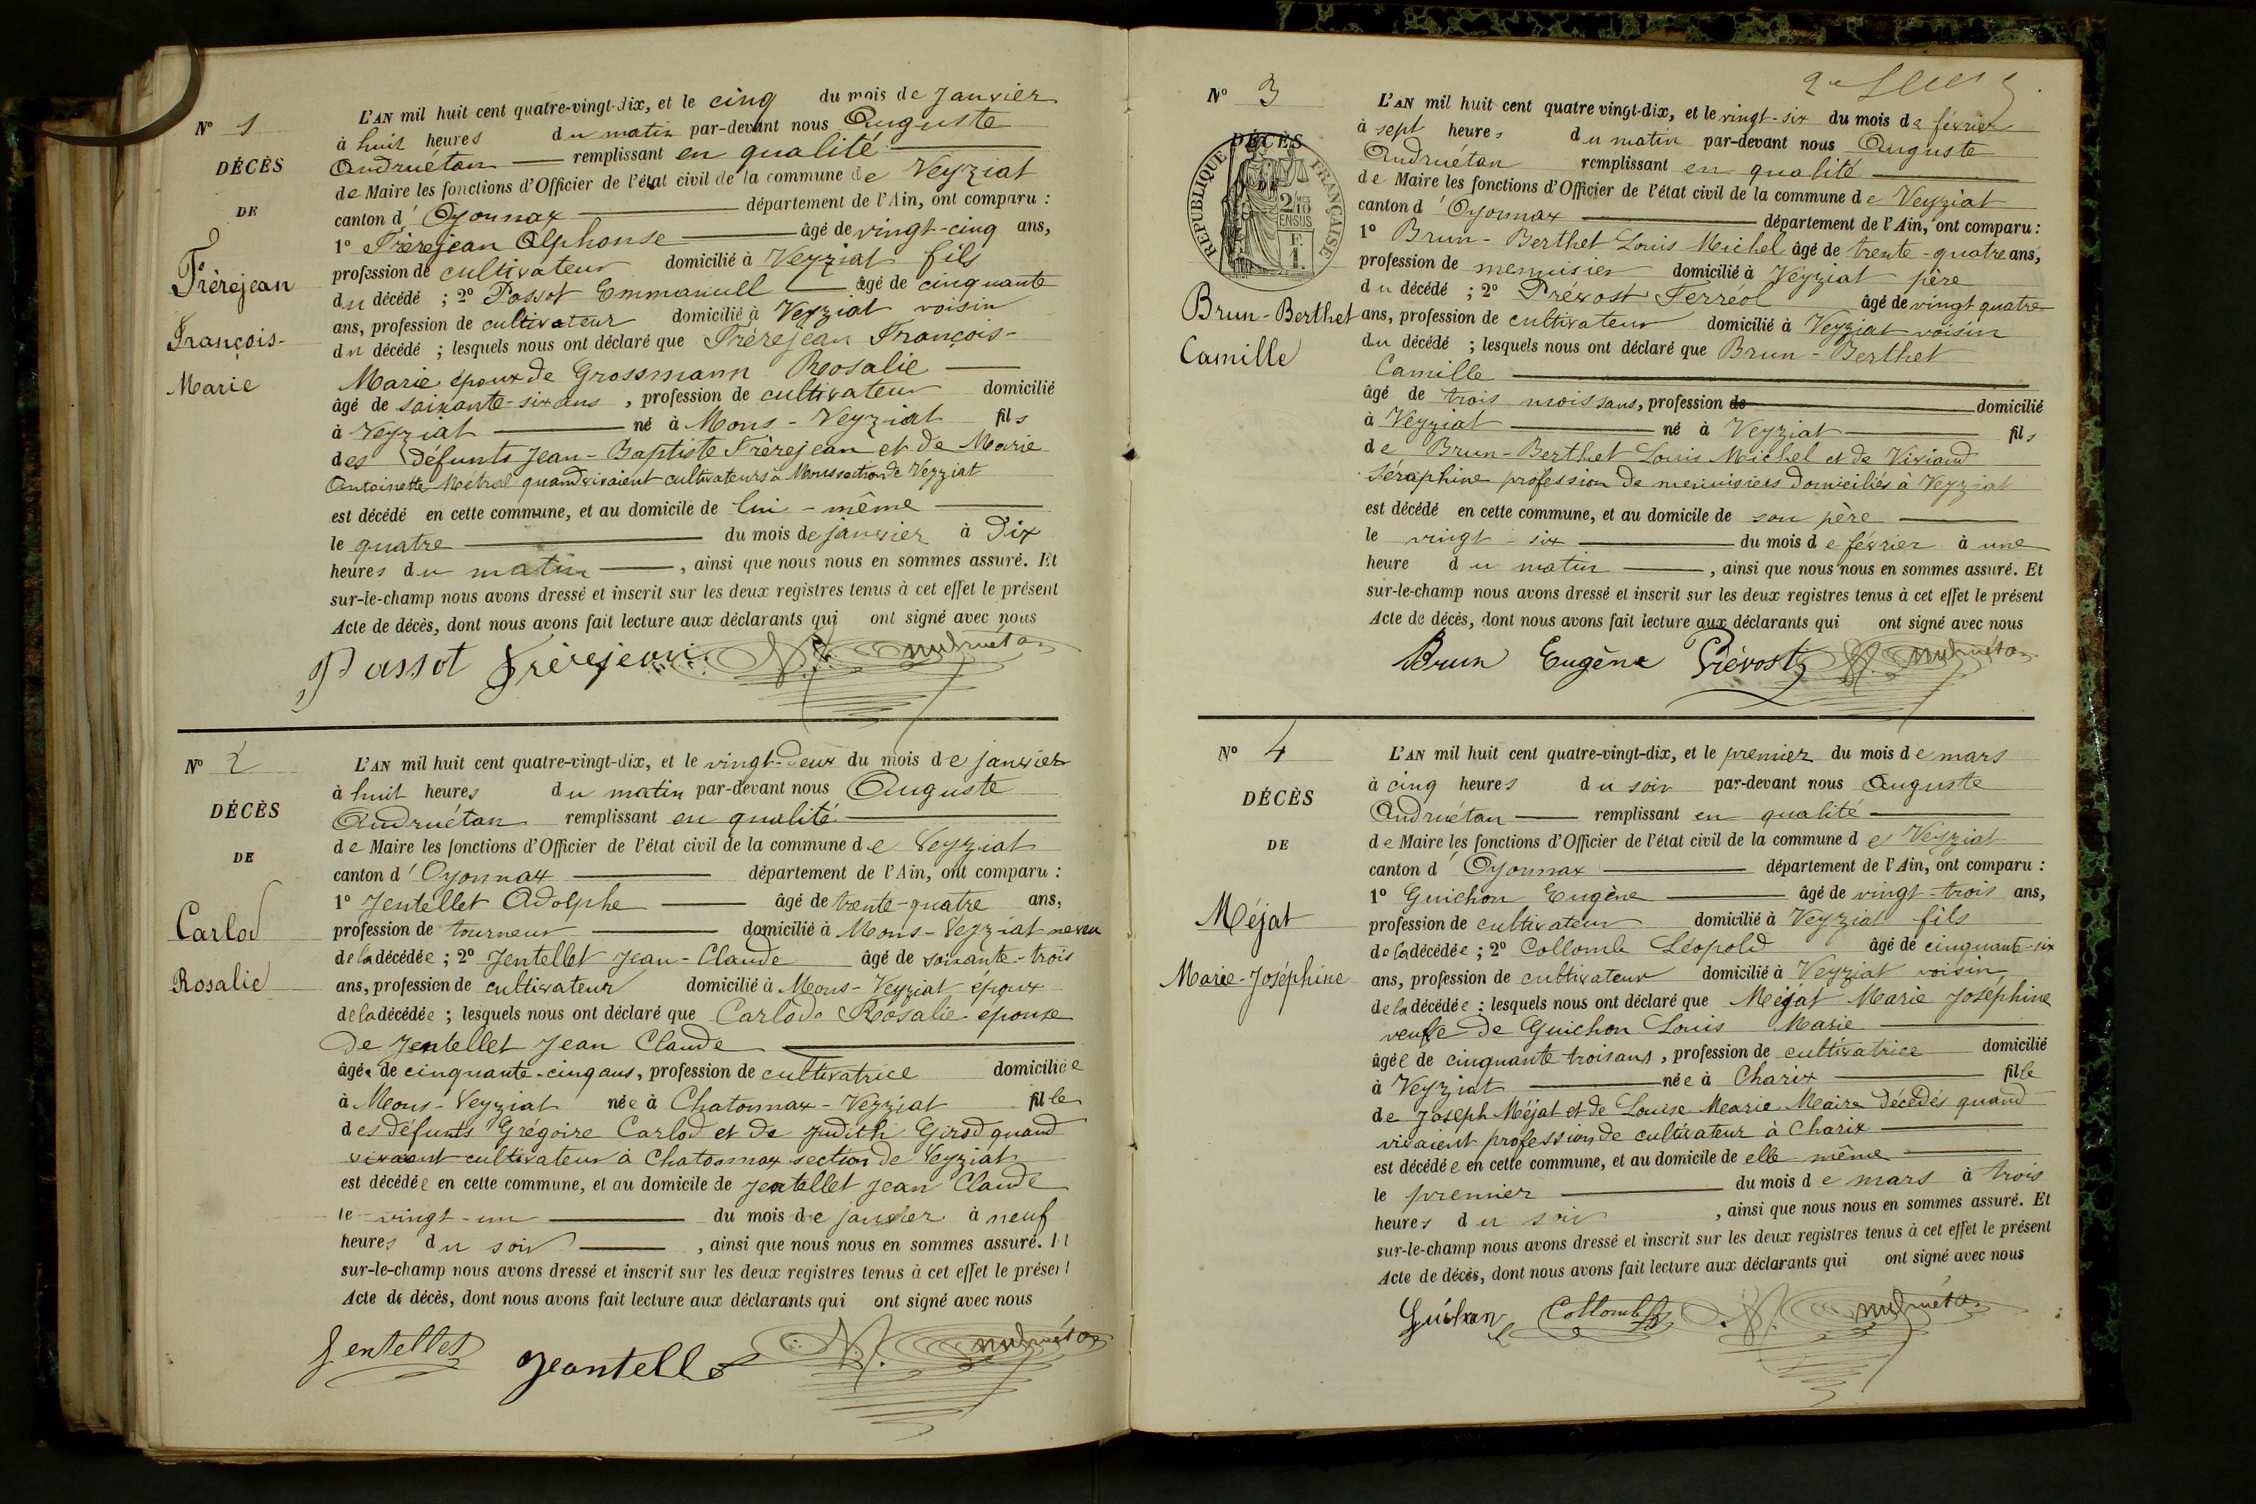 N° 1
DÉCÈS
DE
Frèrejean
François-
Marie
L'AN mil huit cent quatre-vingt-dix, et le cinq du mois de Janvier
à huit heures du matin par-devant nous Auguste
Andruétan remplissant en qualité
de Maire les fonctions d'Officier de l'état civil de la commune de Veyziat
canton d' Oyonnax département de l'Ain, ont comparu :
1° Frèrejean Alphonse âgé de vingt-cinq ans,
profession de cultivateur domicilié à Veyziat fils
du décédé ; 2° Passot Emmanuell âgé de cinquante
ans, profession de cultivateur domicilié à Veyziat voisin
du décédé ; lesquels nous ont déclaré que Frèrejean François-
Marie époux de Grossmann Rosalie
âgé de soixante-six ans, profession de cultivateur domicilié
à Veyziat né à Mons-Veyziat fils
des défunts Jean-Baptiste Frèrejean et de Marie
Antoinette Métral quand vivaient cultivateurs à Mons section de Veyziat
est décédé en cette commune, et au domicile de lui-même
le quatre du mois de janvier à Dix
heures du matin, ainsi que nous nous en sommes assuré. Et
sur-le-champ nous avons dressé et inscrit sur les deux registres tenus à cet effet le présent
Acte de décès, dont nous avons fait lecture aux déclarants qui ont signé avec nous
Passot Frèrejean Andruétan
N° 2
DÉCÈS
DE
Carlod
Rosalie
L'AN mil huit cent quatre-vingt-dix, et le vingt-deux du mois de janvier
à huit heures du matin par-devant nous Auguste
Andruétan remplissant en qualité
de Maire les fonctions d'Officier de l'état civil de la commune de Veyziat
canton d' Oyonnax département de l'Ain, ont comparu :
1° Jentellet Adolphe âgé de trente-quatre ans,
profession de tourneur domicilié à Mons-Veyziat neveu
de la décédée ; 2° Jentellet Jean-Claude âgé de soixante-trois
ans, profession de cultivateur domicilié à Mons-Veyziat époux
de la décédée ; lesquels nous ont déclaré que Carlod Rosalie épouse
de Jentellet Jean Claude
âgée de cinquante-cinq ans, profession de cultivatrice domiciliée
à Mons-Veyziat née à Chatonnax-Veyziat fille
des défunts Grégoire Carlod et de Judith Girod quand
vivaient cultivateur à Chatonnax section de Veyziat
est décédée en cette commune, et au domicile de Jentellet Jean Claude
le vingt-un du mois de janvier à neuf
heures du soir, ainsi que nous nous en sommes assuré. Et
sur-le-champ nous avons dressé et inscrit sur les deux registres tenus à cet effet le présent
Acte de décès, dont nous avons fait lecture aux déclarants qui ont signé avec nous
Jentellet Jeantellet Andruétan
N° 3
DÉCÈS
DE
RÉPUBLIQUE FRANÇAISE
2/10 MES
EN SUS
F.
1.
Brun-Berthet
Camille
L'AN mil huit cent quatre vingt-dix, et le vingt-six du mois de février
à sept heures du matin par-devant nous Auguste
Andruétan remplissant en qualité
de Maire les fonctions d'Officier de l'état civil de la commune de Veyziat
canton d' Oyonnax département de l'Ain, ont comparu :
1° Brun-Berthet Louis Michel âgé de trente-quatre ans,
profession de menuisier domicilié à Veyziat père
du décédé ; 2° Prévost Ferréol âgé de vingt quatre
ans, profession de cultivateur domicilié à Veyziat voisin
du décédé ; lesquels nous ont déclaré que Brun-Berthet
Camille
âgé de trois mois ans, profession de domicilié
à Veyziat né à Veyziat fils
de Brun-Berthet Louis Michel et de Viviand
Séraphine profession de menuisiers domiciliés à Veyziat
est décédé en cette commune, et au domicile de son père
le vingt-six du mois de février à une
heure du matin, ainsi que nous nous en sommes assuré. Et
sur-le-champ nous avons dressé et inscrit sur les deux registres tenus à cet effet le présent
Acte de décès, dont nous avons fait lecture aux déclarants qui ont signé avec nous
Brun Eugène Prévost Andruétan
N° 4
DÉCÈS
DE
Méjat
Marie-Joséphine
L'AN mil huit cent quatre-vingt-dix, et le premier du mois de mars
à cinq heures du soir par-devant nous Auguste
Andruétan remplissant en qualité
de Maire les fonctions d'Officier de l'état civil de la commune de Veyziat
canton d' Oyonnax département de l'Ain, ont comparu :
1° Guichon Eugène âgé de vingt-trois ans,
profession de cultivateur domicilié à Veyziat fils
de la décédée ; 2° Collomb Léopold âgé de cinquante-six
ans, profession de cultivateur domicilié à Veyziat voisin
de la décédée ; lesquels nous ont déclaré que Méjat Marie Joséphine
veuve de Guichon Louis Marie
âgée de cinquante trois ans, profession de cultivatrice domicilié
à Veyziat née à Charix fille
de Joseph Méjat et de Louise Marie Maire décédés quand
vivaient profession de cultivateur à Charix
est décédée en cette commune, et au domicile de elle même
le premier du mois de mars à trois
heures du soir, ainsi que nous nous en sommes assuré. Et
sur-le-champ nous avons dressé et inscrit sur les deux registres tenus à cet effet le présent
Acte de décès, dont nous avons fait lecture aux déclarants qui ont signé avec nous
Guichon Collomb Andruétan